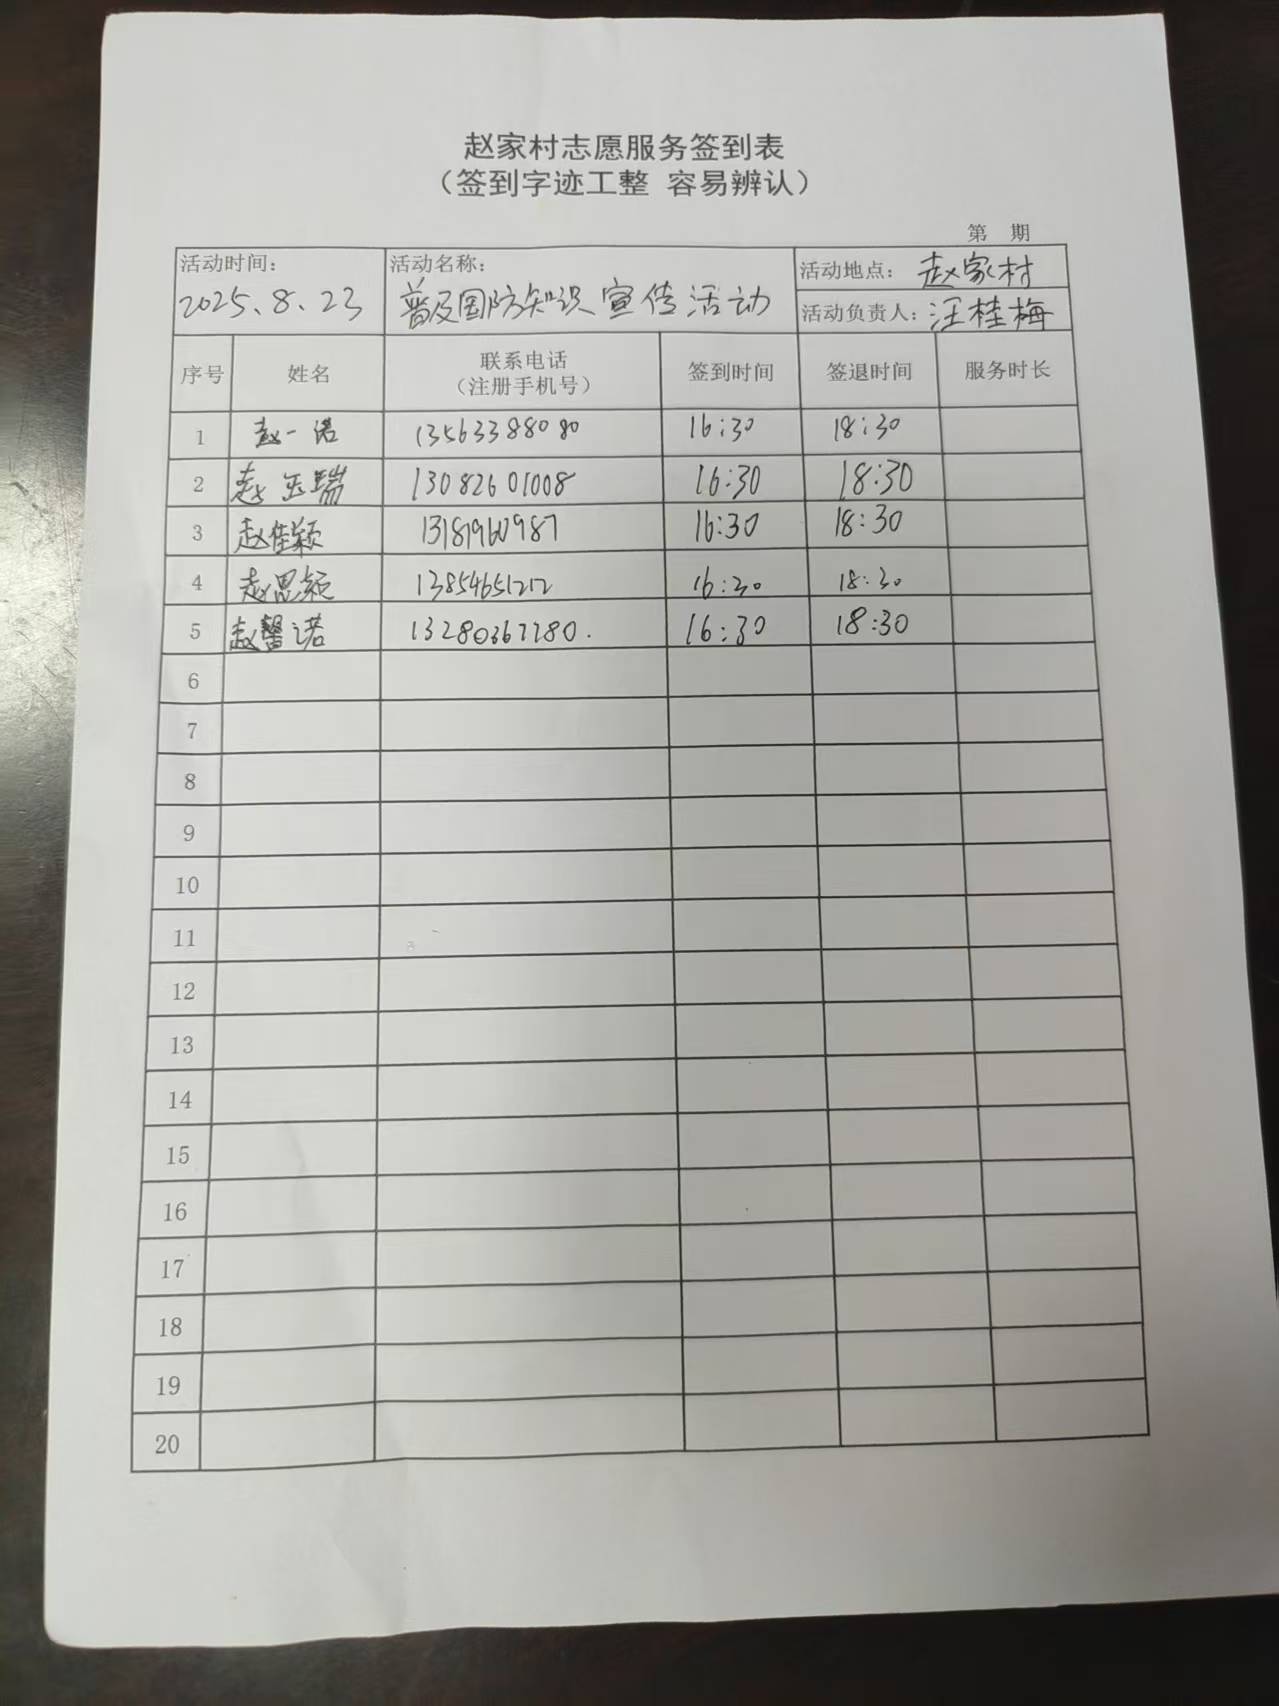 赵家村志愿服务签到表
（签到字迹工整 容易辨认）
第 期
活动时间： 活动名称： 活动地点：赵家村
2025.8.23 普及国防知识宣传活动 活动负责人：汪桂梅
序号 姓名 联系电话（注册手机号） 签到时间 签退时间 服务时长
1 赵一诺 13563388080 16:30 18:30
2 赵玉瑞 13082601008 16:30 18:30
3 赵佳颖 16:30 18:30
4 赵思颖 13854651212 16:30 18:30
5 赵馨诺 16:30 18:30
6
7
8
9
10
11
12
13
14
15
16
17
18
19
20